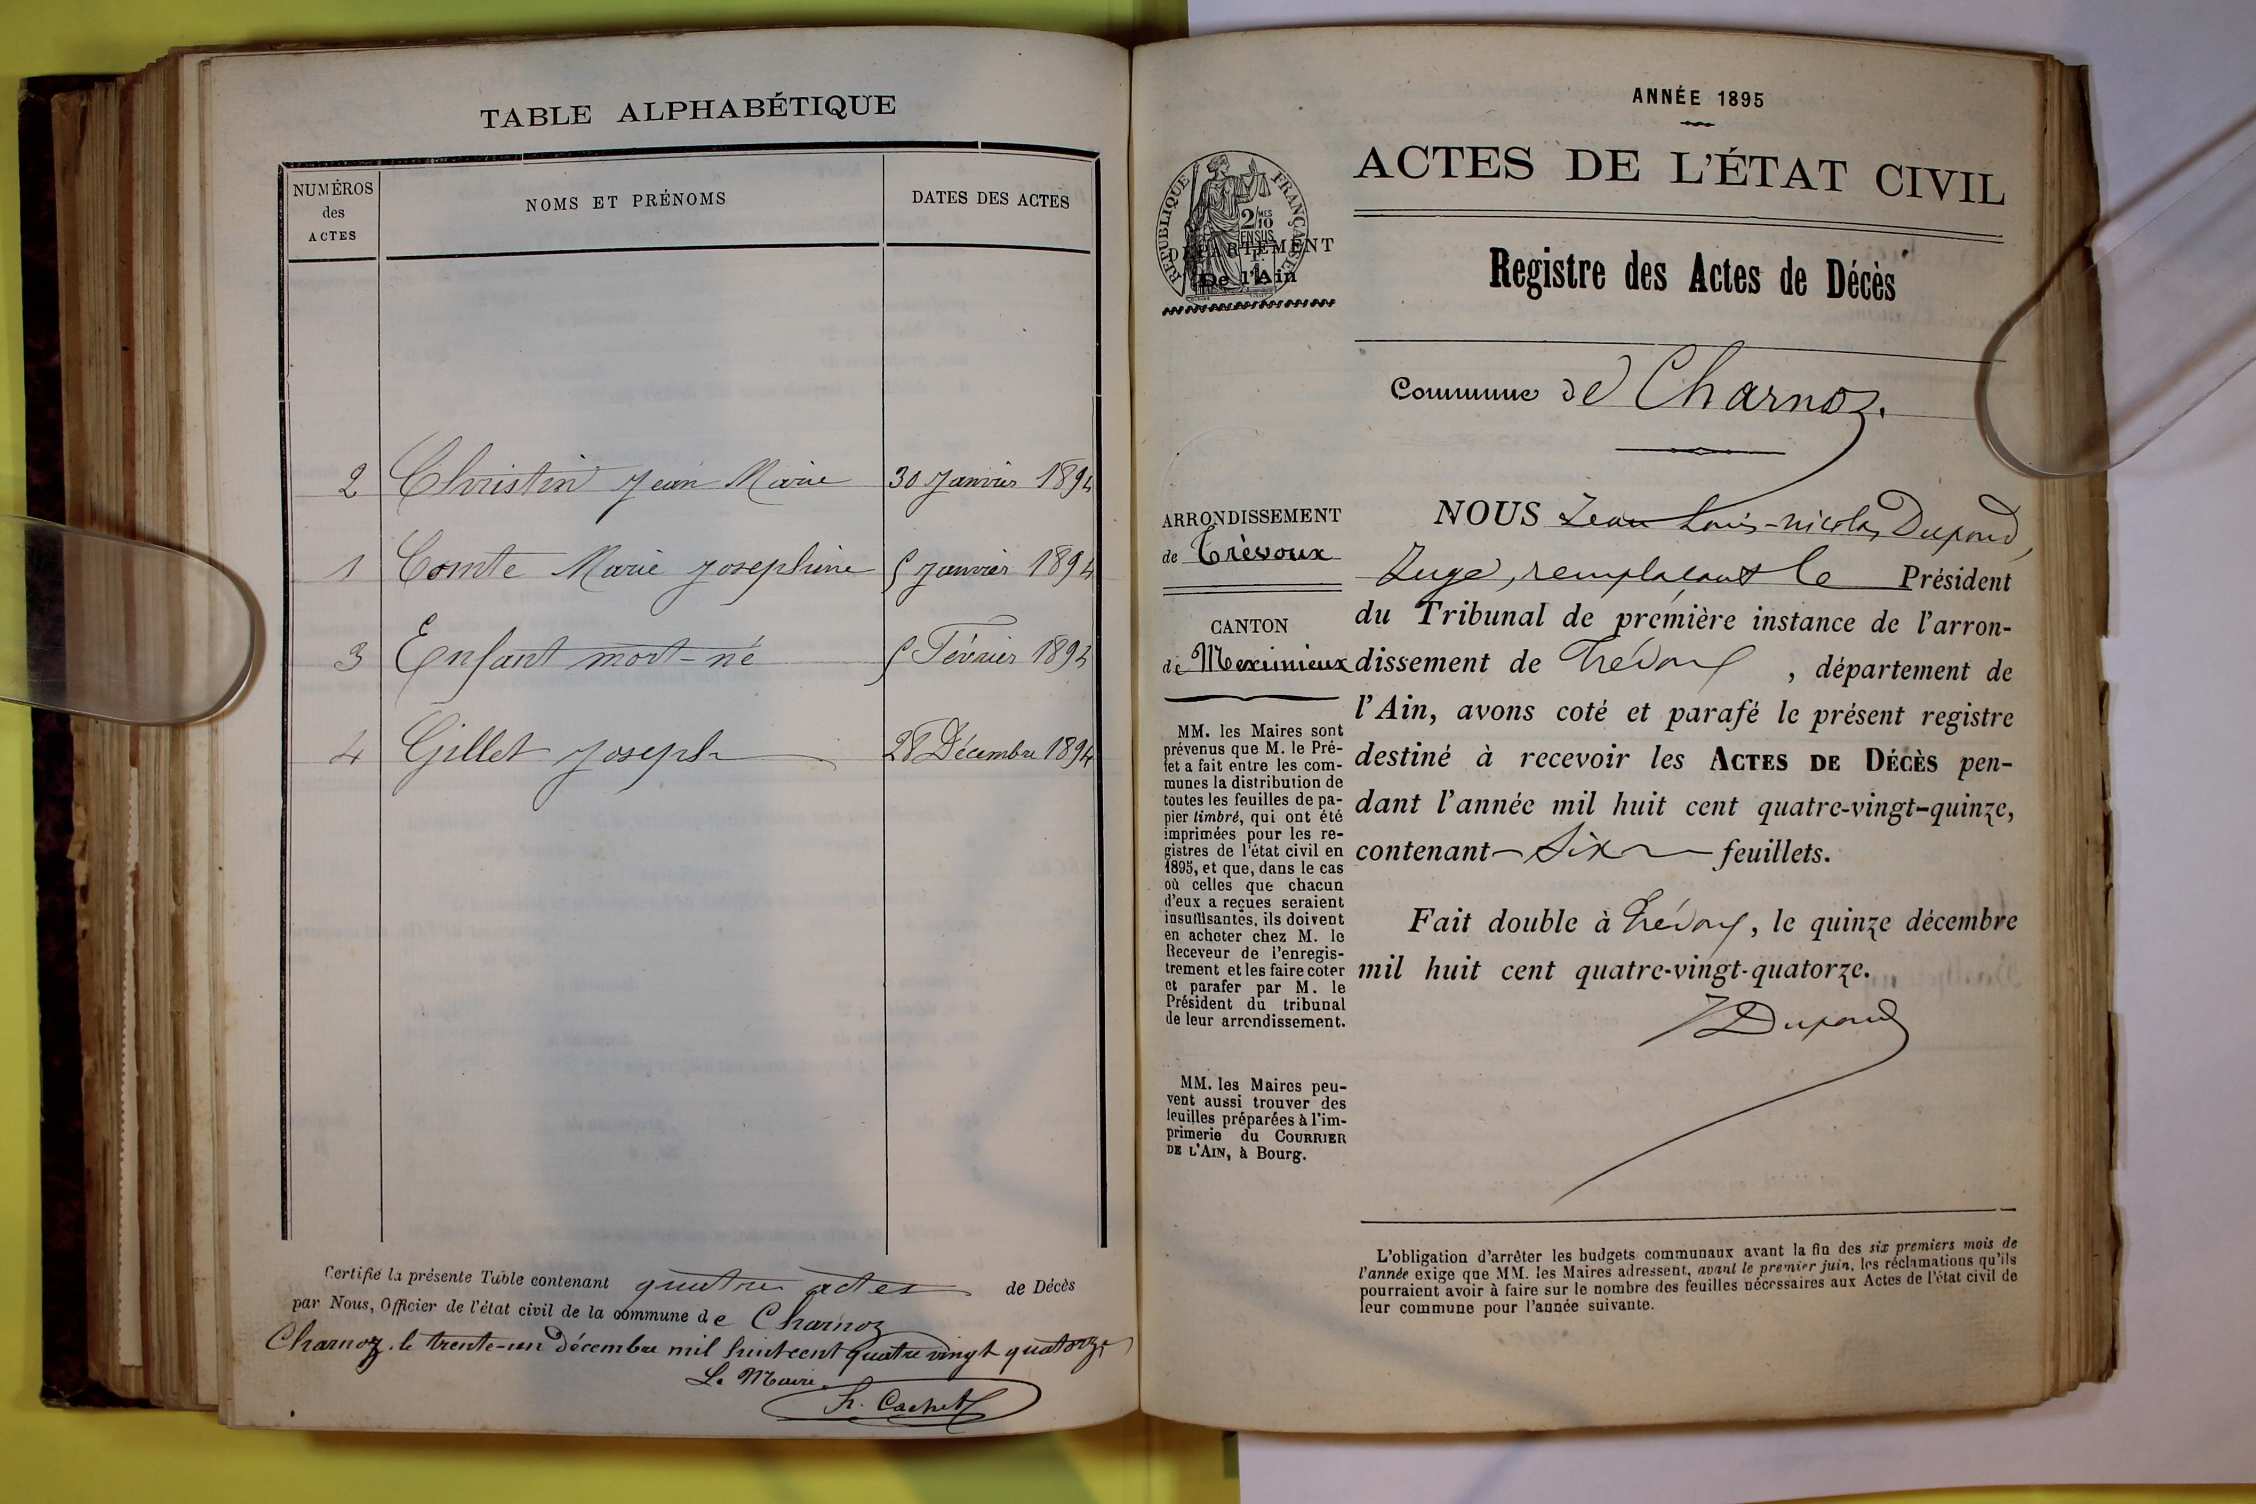 TABLE ALPHABÉTIQUE
NUMÉROS
des
ACTES
NOMS ET PRÉNOMS
DATES DES ACTES
2 Christin Jean Marie 30 Janvier 1894
1 Comte Marie Josephine 5 Janvier 1894
3 Enfant mort-né 5 Février 1894
4 Gillet Joseph 28 Décembre 1894
Certifié la présente Table contenant quatre actes de Décès
par Nous, Officier de l'état civil de la commune de Charnoz
Charnoz, le trente-un Décembre mil huit cent quatre vingt quatorze
Le Maire
Cachet
ANNÉE 1895
ACTES DE L'ÉTAT CIVIL
RÉPUBLIQUE FRANÇAISE
2/10MES
EN SUS
DÉPARTEMENT
De l'Ain
Registre des Actes de Décès
Commune de Charnoz.
ARRONDISSEMENT
de Trévoux
CANTON
de Meximieux
MM. les Maires sont
prévenus que M. le Pré-
fet a fait entre les com-
munes la distribution de
toutes les feuilles de pa-
pier timbré, qui ont été
imprimées pour les re-
gistres de l'état civil en
1895, et que, dans le cas
où celles que chacun
d'eux a reçues seraient
insuffisantes, ils doivent
en acheter chez M. le
Receveur de l'enregis-
trement et les faire coter
et parafer par M. le
Président du tribunal
de leur arrondissement.
MM. les Maires peu-
vent aussi trouver des
feuilles préparées à l'im-
primerie du COURRIER
DE L'AIN, à Bourg.
NOUS Jean Louis-nicolas Dupond,
Juge, remplaçant le Président
du Tribunal de première instance de l'arron-
dissement de Trévoux, département de
l'Ain, avons coté et parafé le présent registre
destiné à recevoir les ACTES DE DÉCÈS pen-
dant l'année mil huit cent quatre-vingt-quinze,
contenant six feuillets.
Fait double à Trévoux, le quinze décembre
mil huit cent quatre-vingt-quatorze.
Dupond
L'obligation d'arrêter les budgets communaux avant la fin des six premiers mois de
l'année exige que MM. les Maires adressent, avant le premier juin, les réclamations qu'ils
pourraient avoir à faire sur le nombre des feuilles nécessaires aux Actes de l'état civil de
leur commune pour l'année suivante.